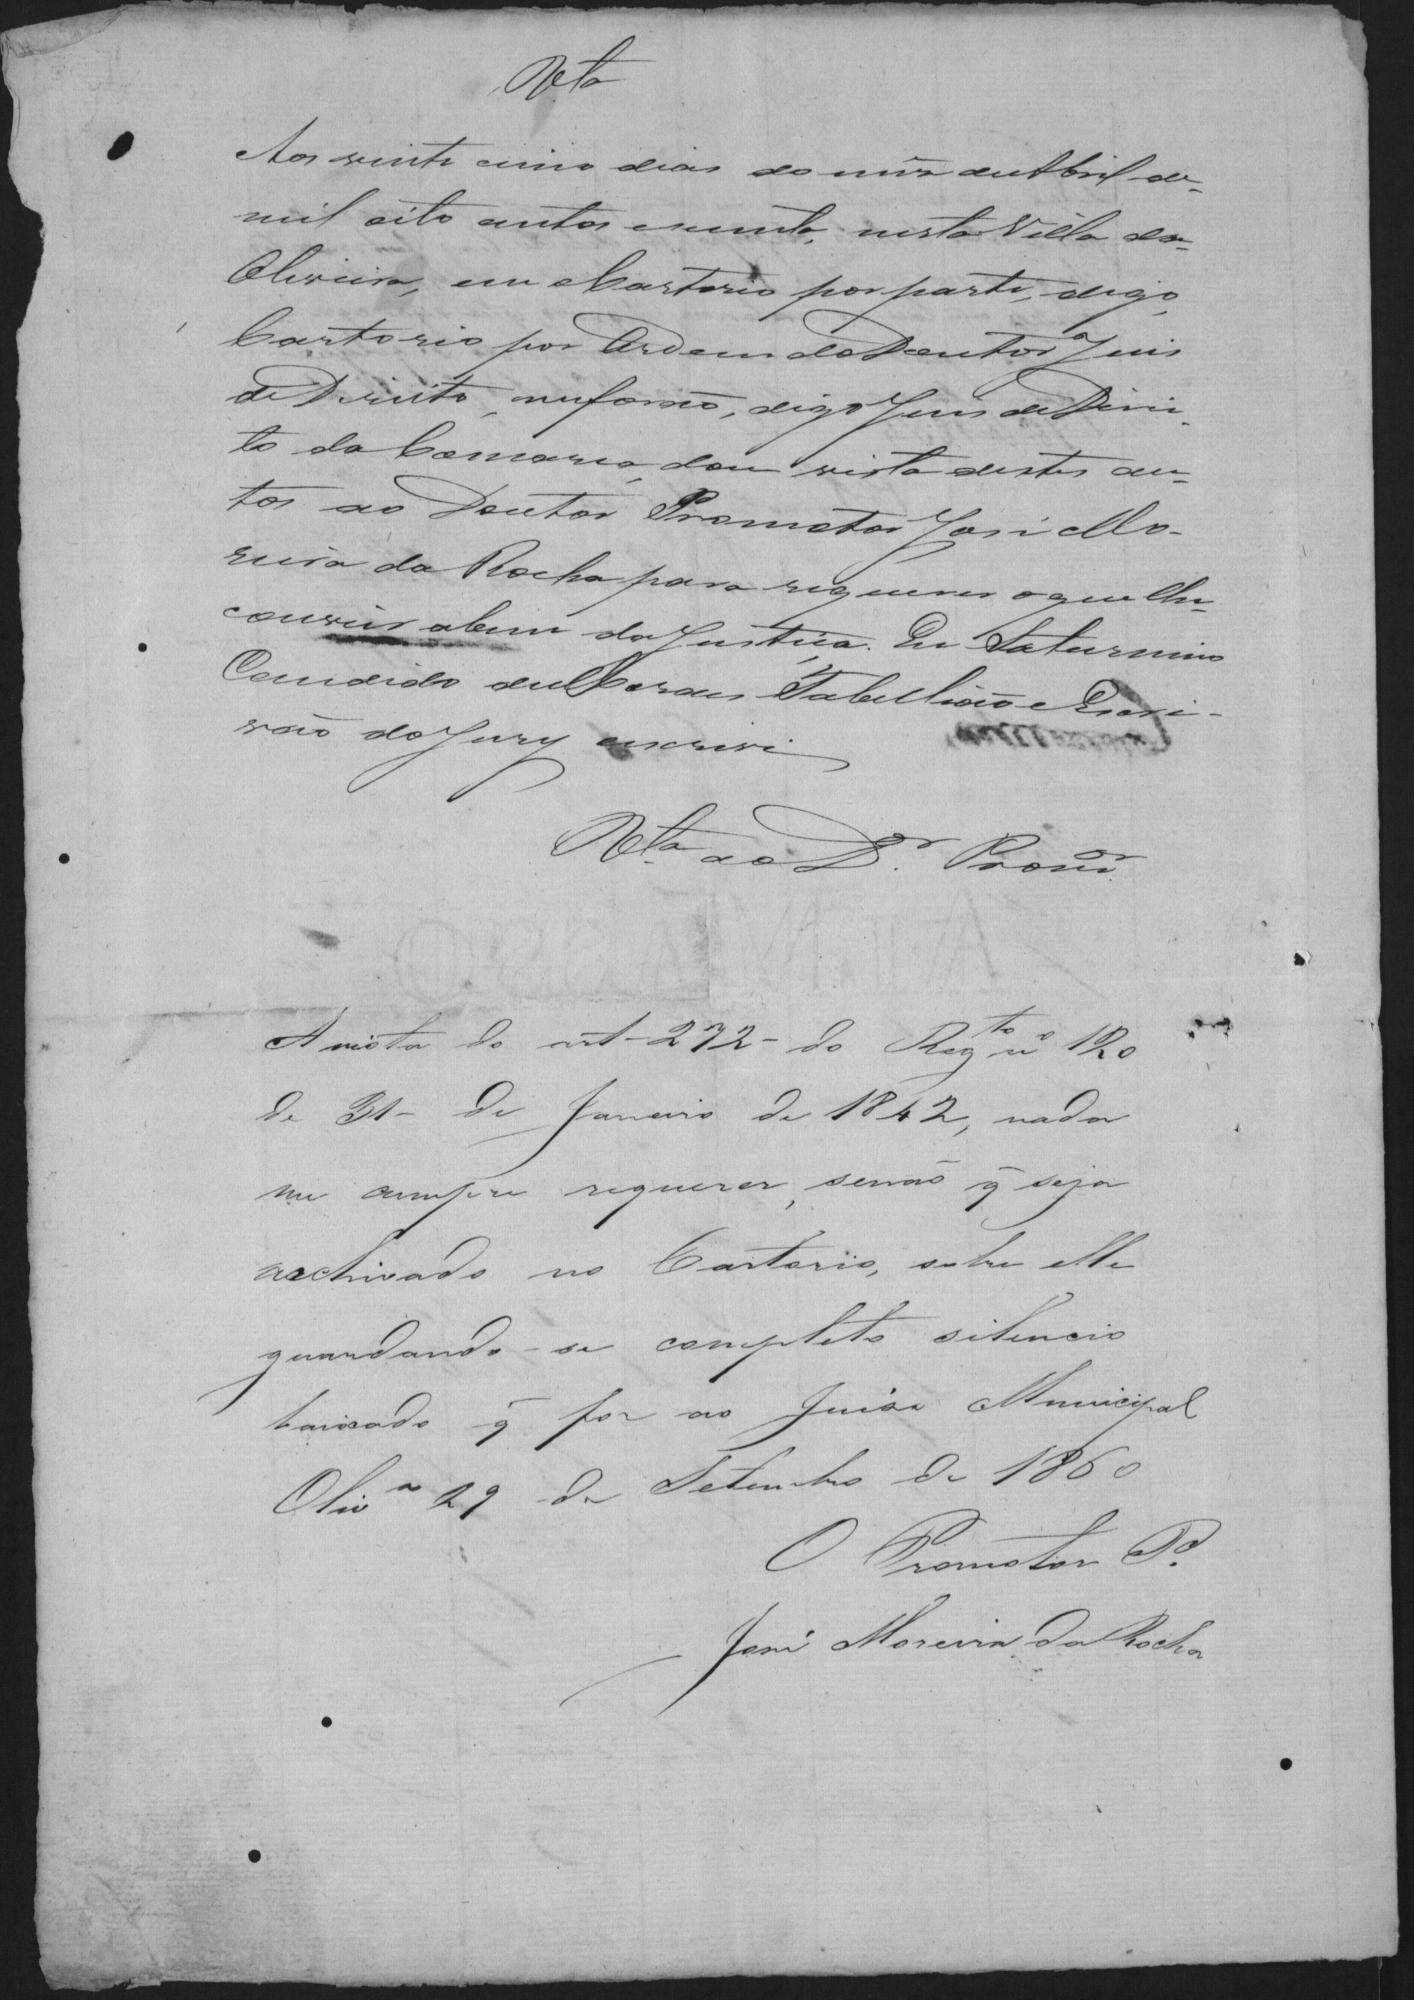 Vta
Aos vinte cinco dias do mês de Abril de
mil oito centos e secenta, nesta Villa da
Oliveira, em o Cartorio por parte, digo,
Cartorio por Ordem do Doutor Juis
de Direito, digo Juis de Direi
to da Comarca, dou vista destes au
tos ao Doutor Promotor José Mo-
reira da Rocha para requerer o que lhe
convier abem da Justiça. Eu Saturnino
Candido de Tabellião e Escri-
vão do Jury escrivi
Vta ao Dr. Promor
A vista do art-272- do Regto nº 120
de 31- de Janeiro de 1842, nada
me cumpre requerer, senão q̃ seja
archivado no Cartorio, sobre elle
guardando-se completo silencio
baixado q̃ for ao Juiso Municipal
Oliva 29 de Setembro de 1860
O Promotor Pº.
José Moreira da Rocha